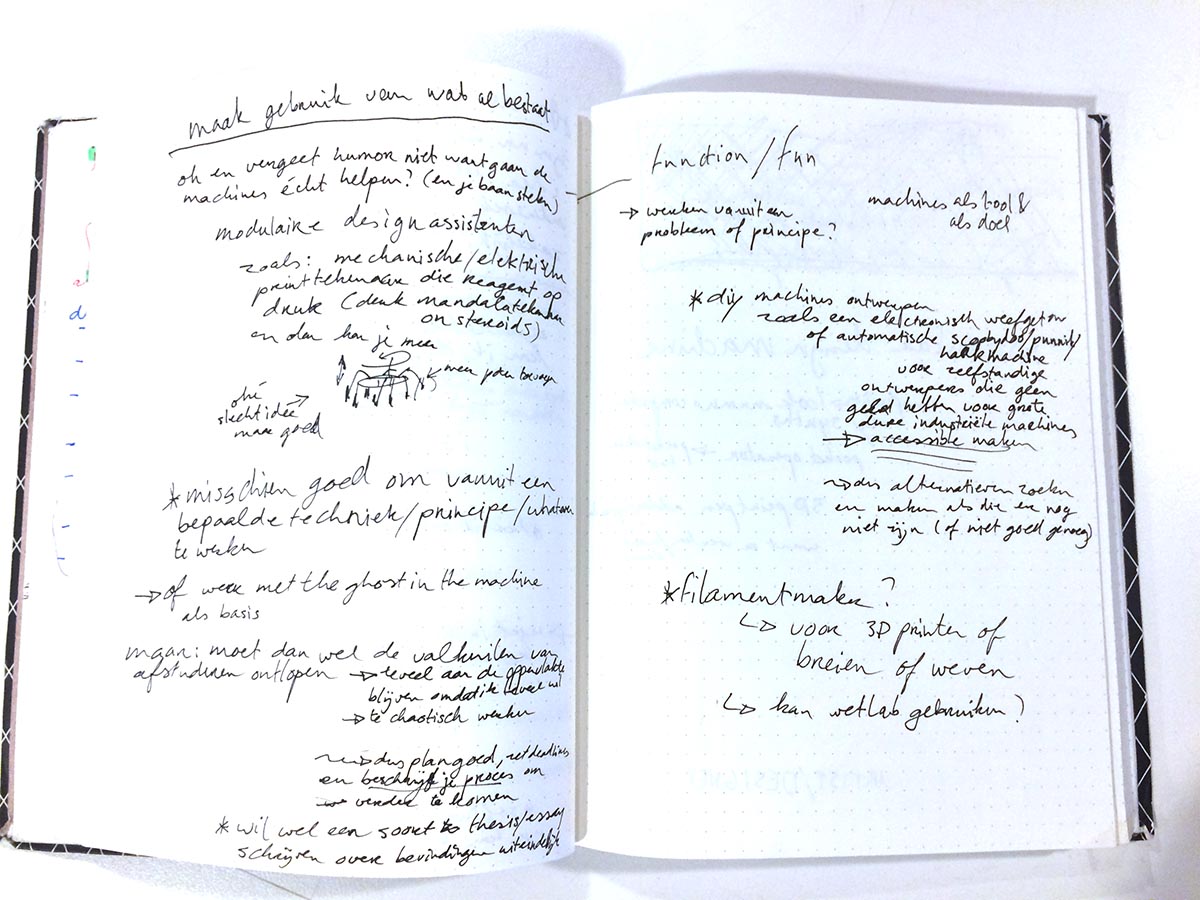 maak gebruik van wat al bestaat
oh en vergeet humor niet want gaan de
machines écht helpen? (en je baan stelen)
modulaire design assistenten
zoals: mechanische/elektrische
printtekenaar die reageert op
druk (denk mandalatekenen
on steroids)
en dan kan je meer
meer poten toevoegen
ohé
slecht idee
maar goed
*misschien goed om vanuit een
bepaalde techniek/principe/whatever
te werken
→ of werk met the ghost in the machine
als basis
maar: moet dan wel de valkuilen van
afstuderen ontlopen → teveel aan de oppervlakte
blijven omdat ik teveel wil
→ te chaotisch werken
dus plan goed, zet deadlines
en beschrijf je proces om
verder te komen
*wil wel een soort thesis/essay
schrijven over bevindingen uiteindelijk
function/fun
→ werken vanuit een
probleem of principe?
machines als tool &
als doel
*diy machines ontwerpen
zoals een electronisch weefgetouw
of automatische scoobydoo/punnik/
haakmachine
voor zelfstandige
ontwerpers die geen
geld hebben voor grote
dure industriële machines
→ accessible maken
→ dus alternatieven zoeken
en maken als die er nog
niet zijn (of niet goed genoeg)
*filamentmaker?
↳ voor 3D printen of
breien of weven
↳ kan wetlab gebruiken?